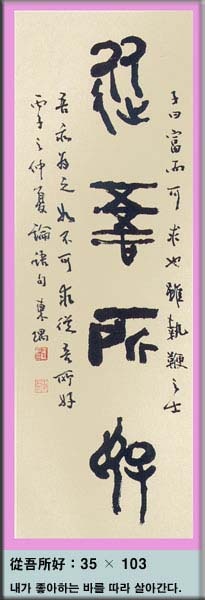 從吾所好
子曰富而可求也雖執鞭之士
吾亦為之如不可求從吾所好
丙子之仲夏論語句東
從吾所好 : 35 × 103
내가 좋아하는 바를 따라 살아간다.